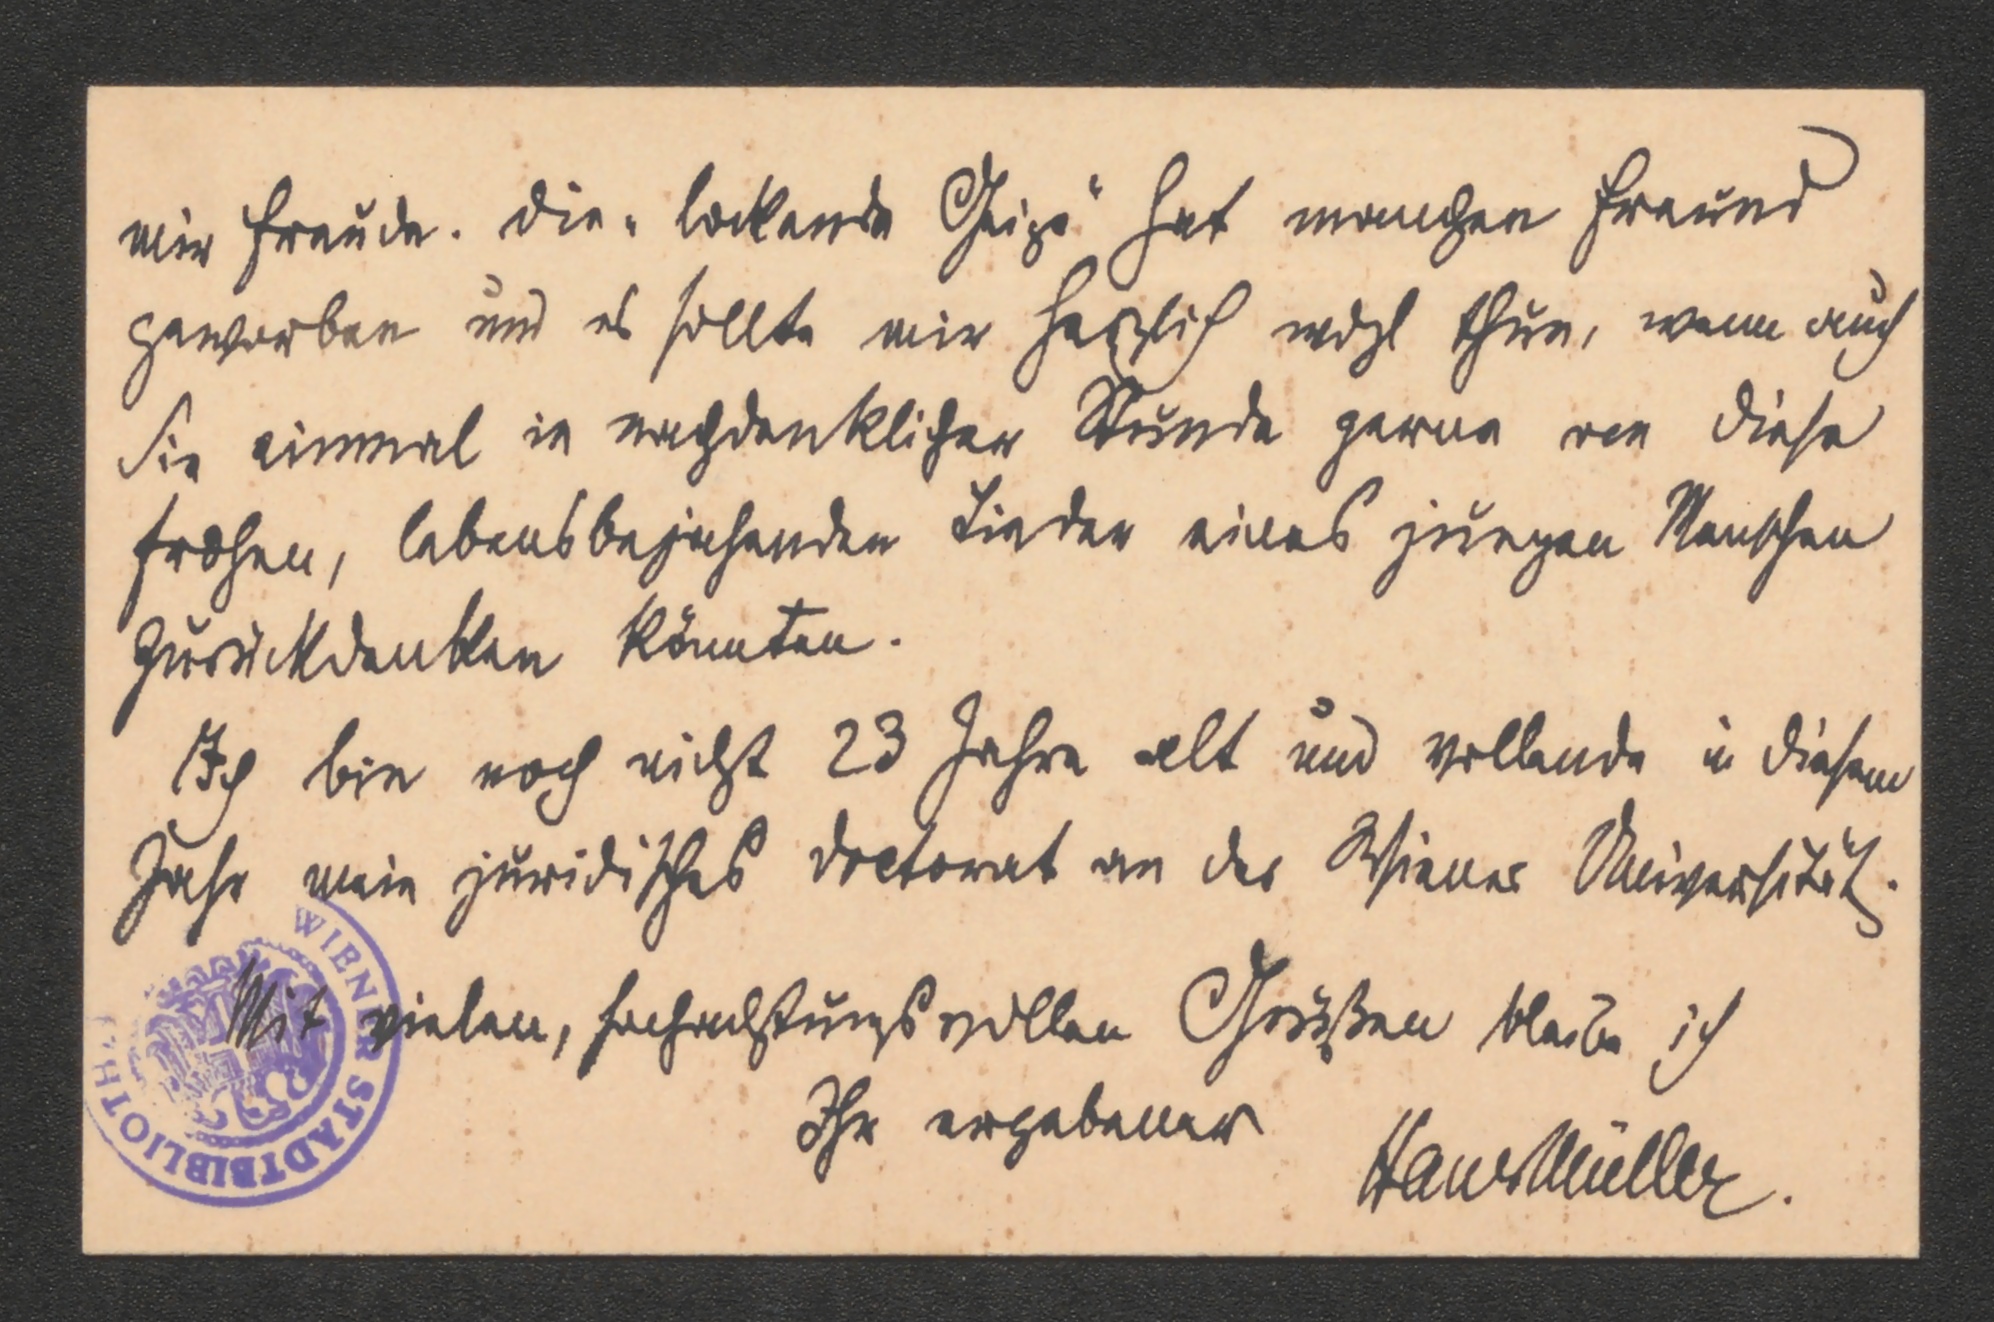 mir Freude. Die „lockende Geige" hat manchen Freund
geworben und es sollte mir herzlich wohl thun, wenn auch
Sie einmal in nachdenklicher Stunde gerne an diese
frohen, lebensbejahenden Lieder eines jungen Menschen
zurückdenken könnten.
Ich bin noch nicht 23 Jahre alt und vollende in diesem
Jahr mein juridisches Doctorat an der Wiener Universität.
Mit vielen, hochachtungsvollen Grüßen bleibe ich
Ihr ergebener
Hans Müller.
WIENER STADTBIBLIOTHEK